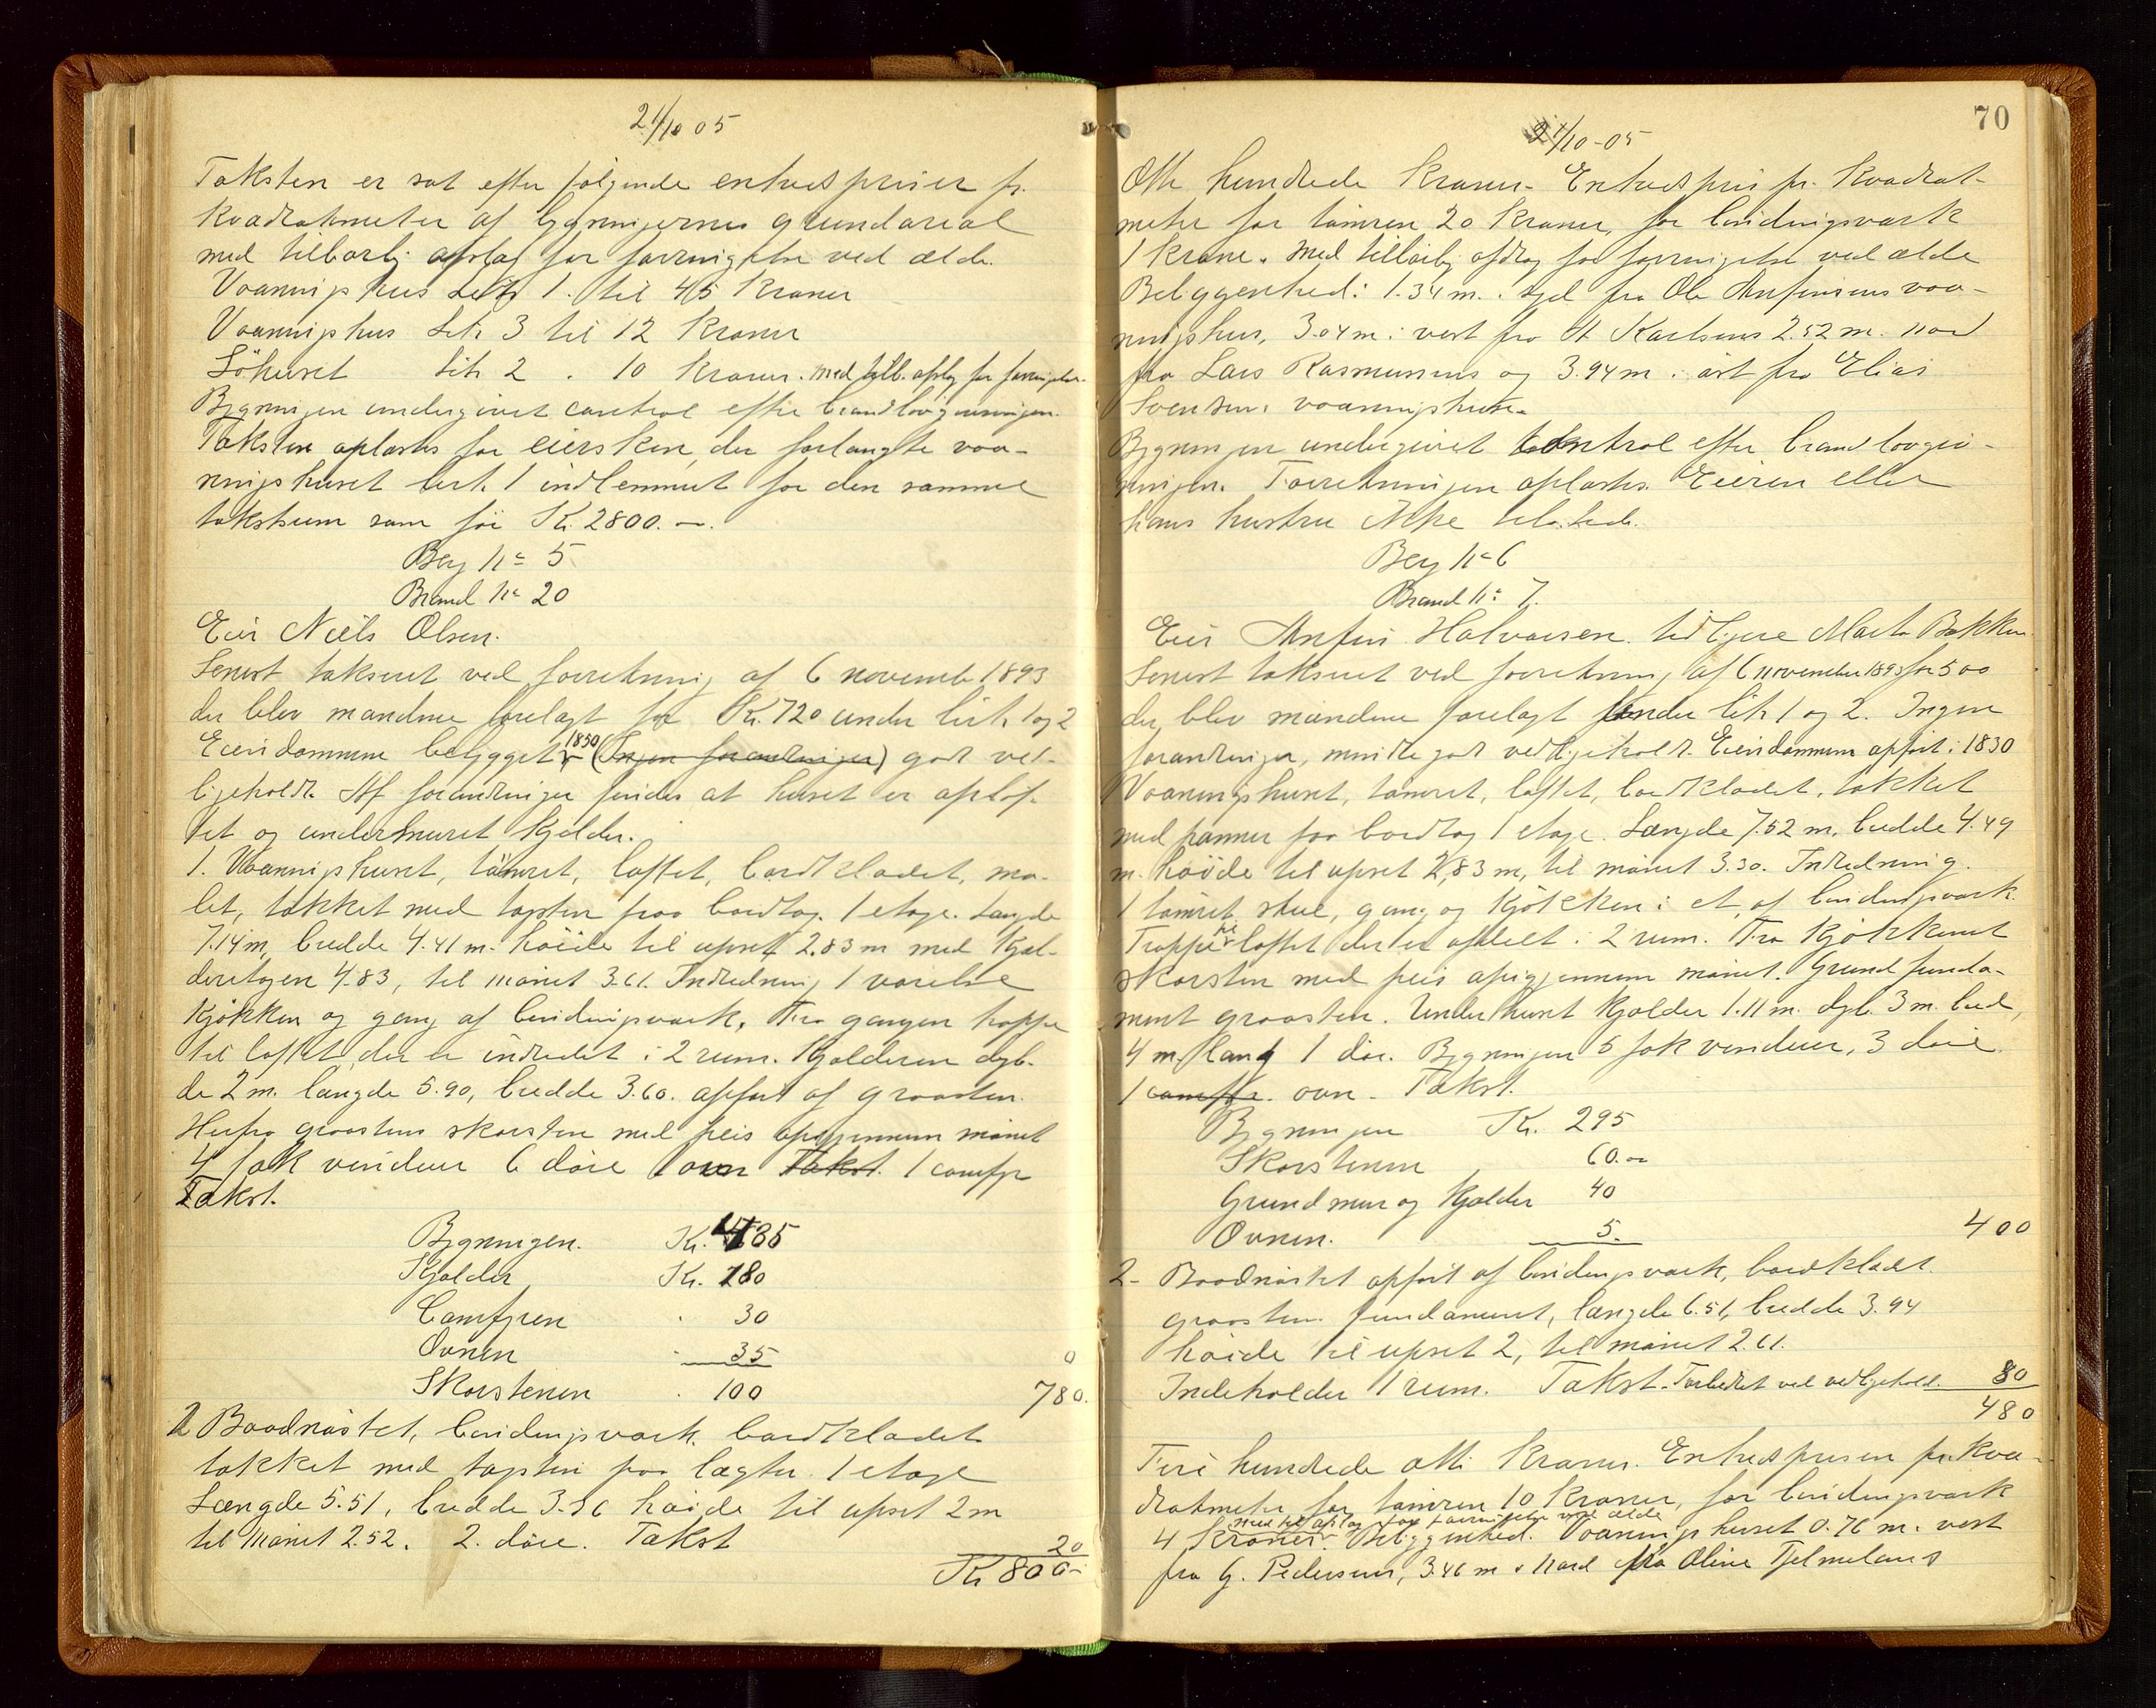 21/10 05
Taksten er sat efter følgende enhedspriser pr.
Kvadratmeter af bygningernes grundareal
med tilbørlig afslag for forringelse ved ælde.
Vaaningshus Litr 1. til 45 Kroner
Vaaningshus Litr 3 til 12 Kroner
Söhuset Litr 2 . 10 Kroner. med tilb. afslag for forringelse.
Bygningen undergivet control efter brandlovgivningen.
Taksten oplæstes for eiersken, der forlangte vaa-
ningshuset litr. 1 indlemmet for den samme
takstsum som før Kr. 2800.—.
Berg No 5
Brand No 20
Eier Niels Olsen.
Senest takseret ved forretning af 6 november 1893
der blev mændene forelagt for Kr. 720 under litr. 1 og 2
Eiendommene bebygget 1850 (Ingen forandringer) godt ved-
ligeholdt. Af forandringer findes at huset er opløf-
tet og undermuret kjelder.
1. Vaaningshuset, tømret, loftet, bordklædt, ma-
let, tækket med tagsten paa bordtag. 1 etage. Længde
7.14 m, bredde 4.41 m. høide til upset 2.83 m med Kjæl-
deretagen 4.83, til mønet 3.61. Indredning 1 værelse
Kjøkken og gang af bindingsværk. Fra gangen trappe
til loftet, der er indredet i 2 rum. Kjælderen dyb-
de 2 m. længde 5.90, bredde 3.60. opført af graasten.
Herfra graastens skorsten med peis opigjennem mønet
4 fak vinduer 6 døre 1 ovn Takst. 1 comfyr
Takst.
Bygningen. Kr. 435
Kjælder Kr. 180
Comfyren . 30
Ovnen . 35
0
Skorstenen . 100 780.
2 Baadnøstet, bindingsværk bordklædt
tækket med tagsten paa lægter. 1 etage
Længde 5.51, bredde 3.36 høide til upset 2 m
til mønet 2.52. 2. døre. Takst 20
Kr 800-
70
21/10-05
Otte hundrede Kroner. Enhedspris pr. Kvadrat-
meter for tømren 20 Kroner, for bindingsværk
1 krone. med tilbørlig afdrag for forringelse ved ælde
Beliggenhed: 1.34 m. syd fra Ole Anfinsens vaa-
ningshus, 3.04 m. vest fra A Karlsens 2.52 m. nord
fra Lars Rasmussens og 3.94 m. øst fra Elias
Svensens vaaningshuse.
Bygningen undergivet kontrol efter brandlovgiv-
ningen. Forretningen oplæstes. Eieren eller
hans hustru ikke tilstede.
Berg No 6
Brand No 7.
Eier Anfin Halvorsen. tidligere Marta Bakken.
Senest takseret ved forretning af 6 november 1893 for 500
der blev mændene forelagt under litr 1 og 2. Ingen
forandringer, mindre godt vedligeholdt. Eiendommen opført i 1830
Vaaningshuset, tømret, loftet, bordklædet, tækket
med panner paa bordtag 1 etage. Længde 7.52 m, bredde 4.49
m. høide til upset 2,83 m, til mønet 3.30. Indredning.
1 tømret stue, gang og kjøkken i et af bindingsværk
Trappe til loftet der er afdelt i 2 rum. Fra Kjøkkenet
skorsten med peis opigjennem mønet. Grund funda-
ment graasten. Under huset Kjælder 1.11 m. dyb. 3 m. bred,
4 m. lang 1 dør. Bygningen 5 fak vinduer, 3 døre
1 comfyr. ovn. Takst.
Bygningen Kr. 295
Skorstenen 60.—
Grundmur og Kjælder 40
Ovnen. 5. 400
2- Baadnøstet opført af bindingsværk, bordklædt.
graasten. fundament, længde 6.51, bredde 3.94
høide til upset 2, til mønet 2.61.
Indeholder 1 rum. Takst. Forbedret ved vedligehold. 80
480
Fire hundrede otti Kroner. Enhedsprisen pr. Kva-
dratmeter for tømren 10 Kroner, for bindingsværk
med tilb. afslag for forringelse ved ælde
4 Kroner. Beliggenhed. Vaaningshuset 0.76 m. vest
fra G. Pedersens, 3.46 m. nord fra Oline Tjelmelans